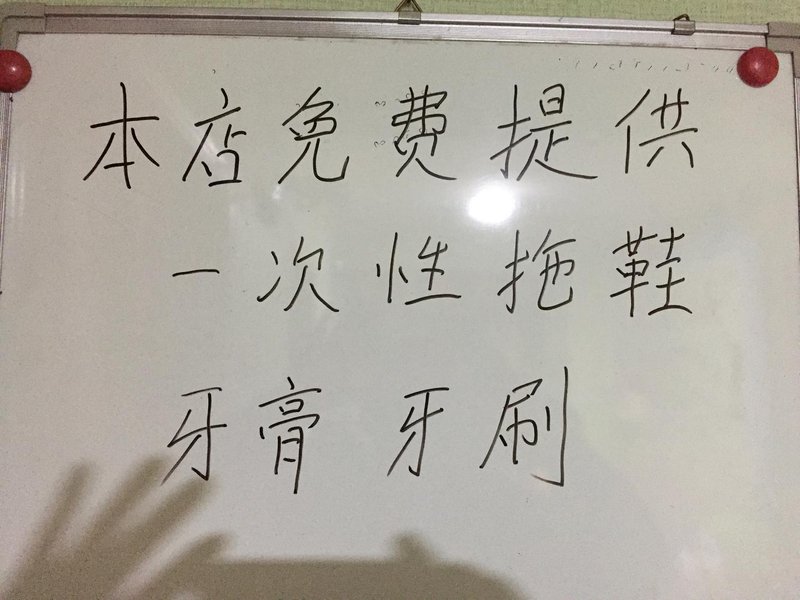 本店免费提供
一次性拖鞋
牙膏 牙刷